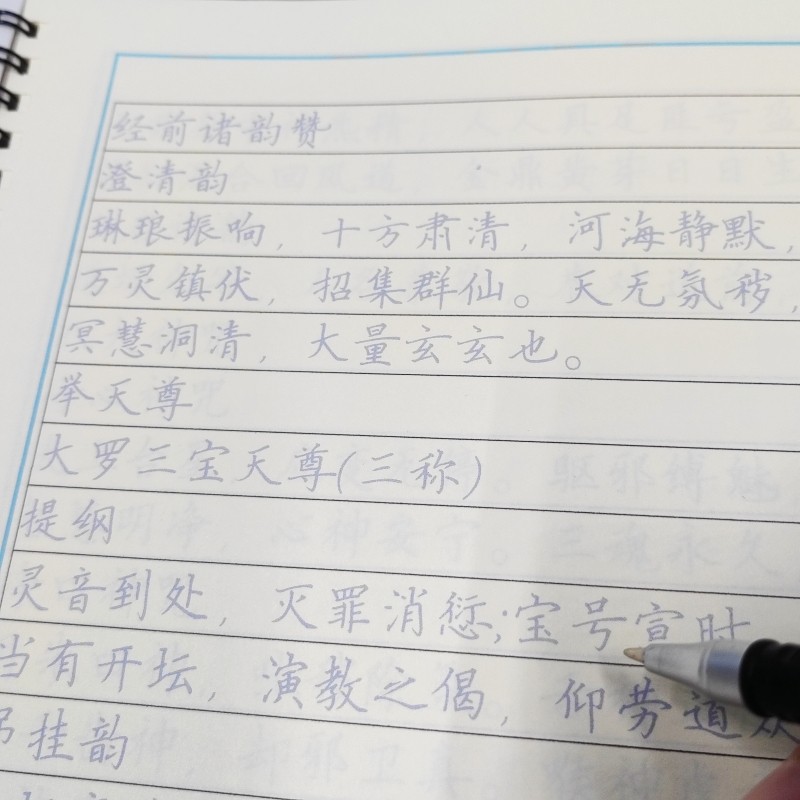 经前诸韵赞
澄清韵
琳琅振响，十方肃清，河海静默，
万灵镇伏，招集群仙。天无氛秽，
冥慧洞清，大量玄玄也。
举天尊
大罗三宝天尊(三称)
提纲
灵音到处，灭罪消愆;宝号宣时
当有开坛，演教之偈，仰劳道众
吊挂韵